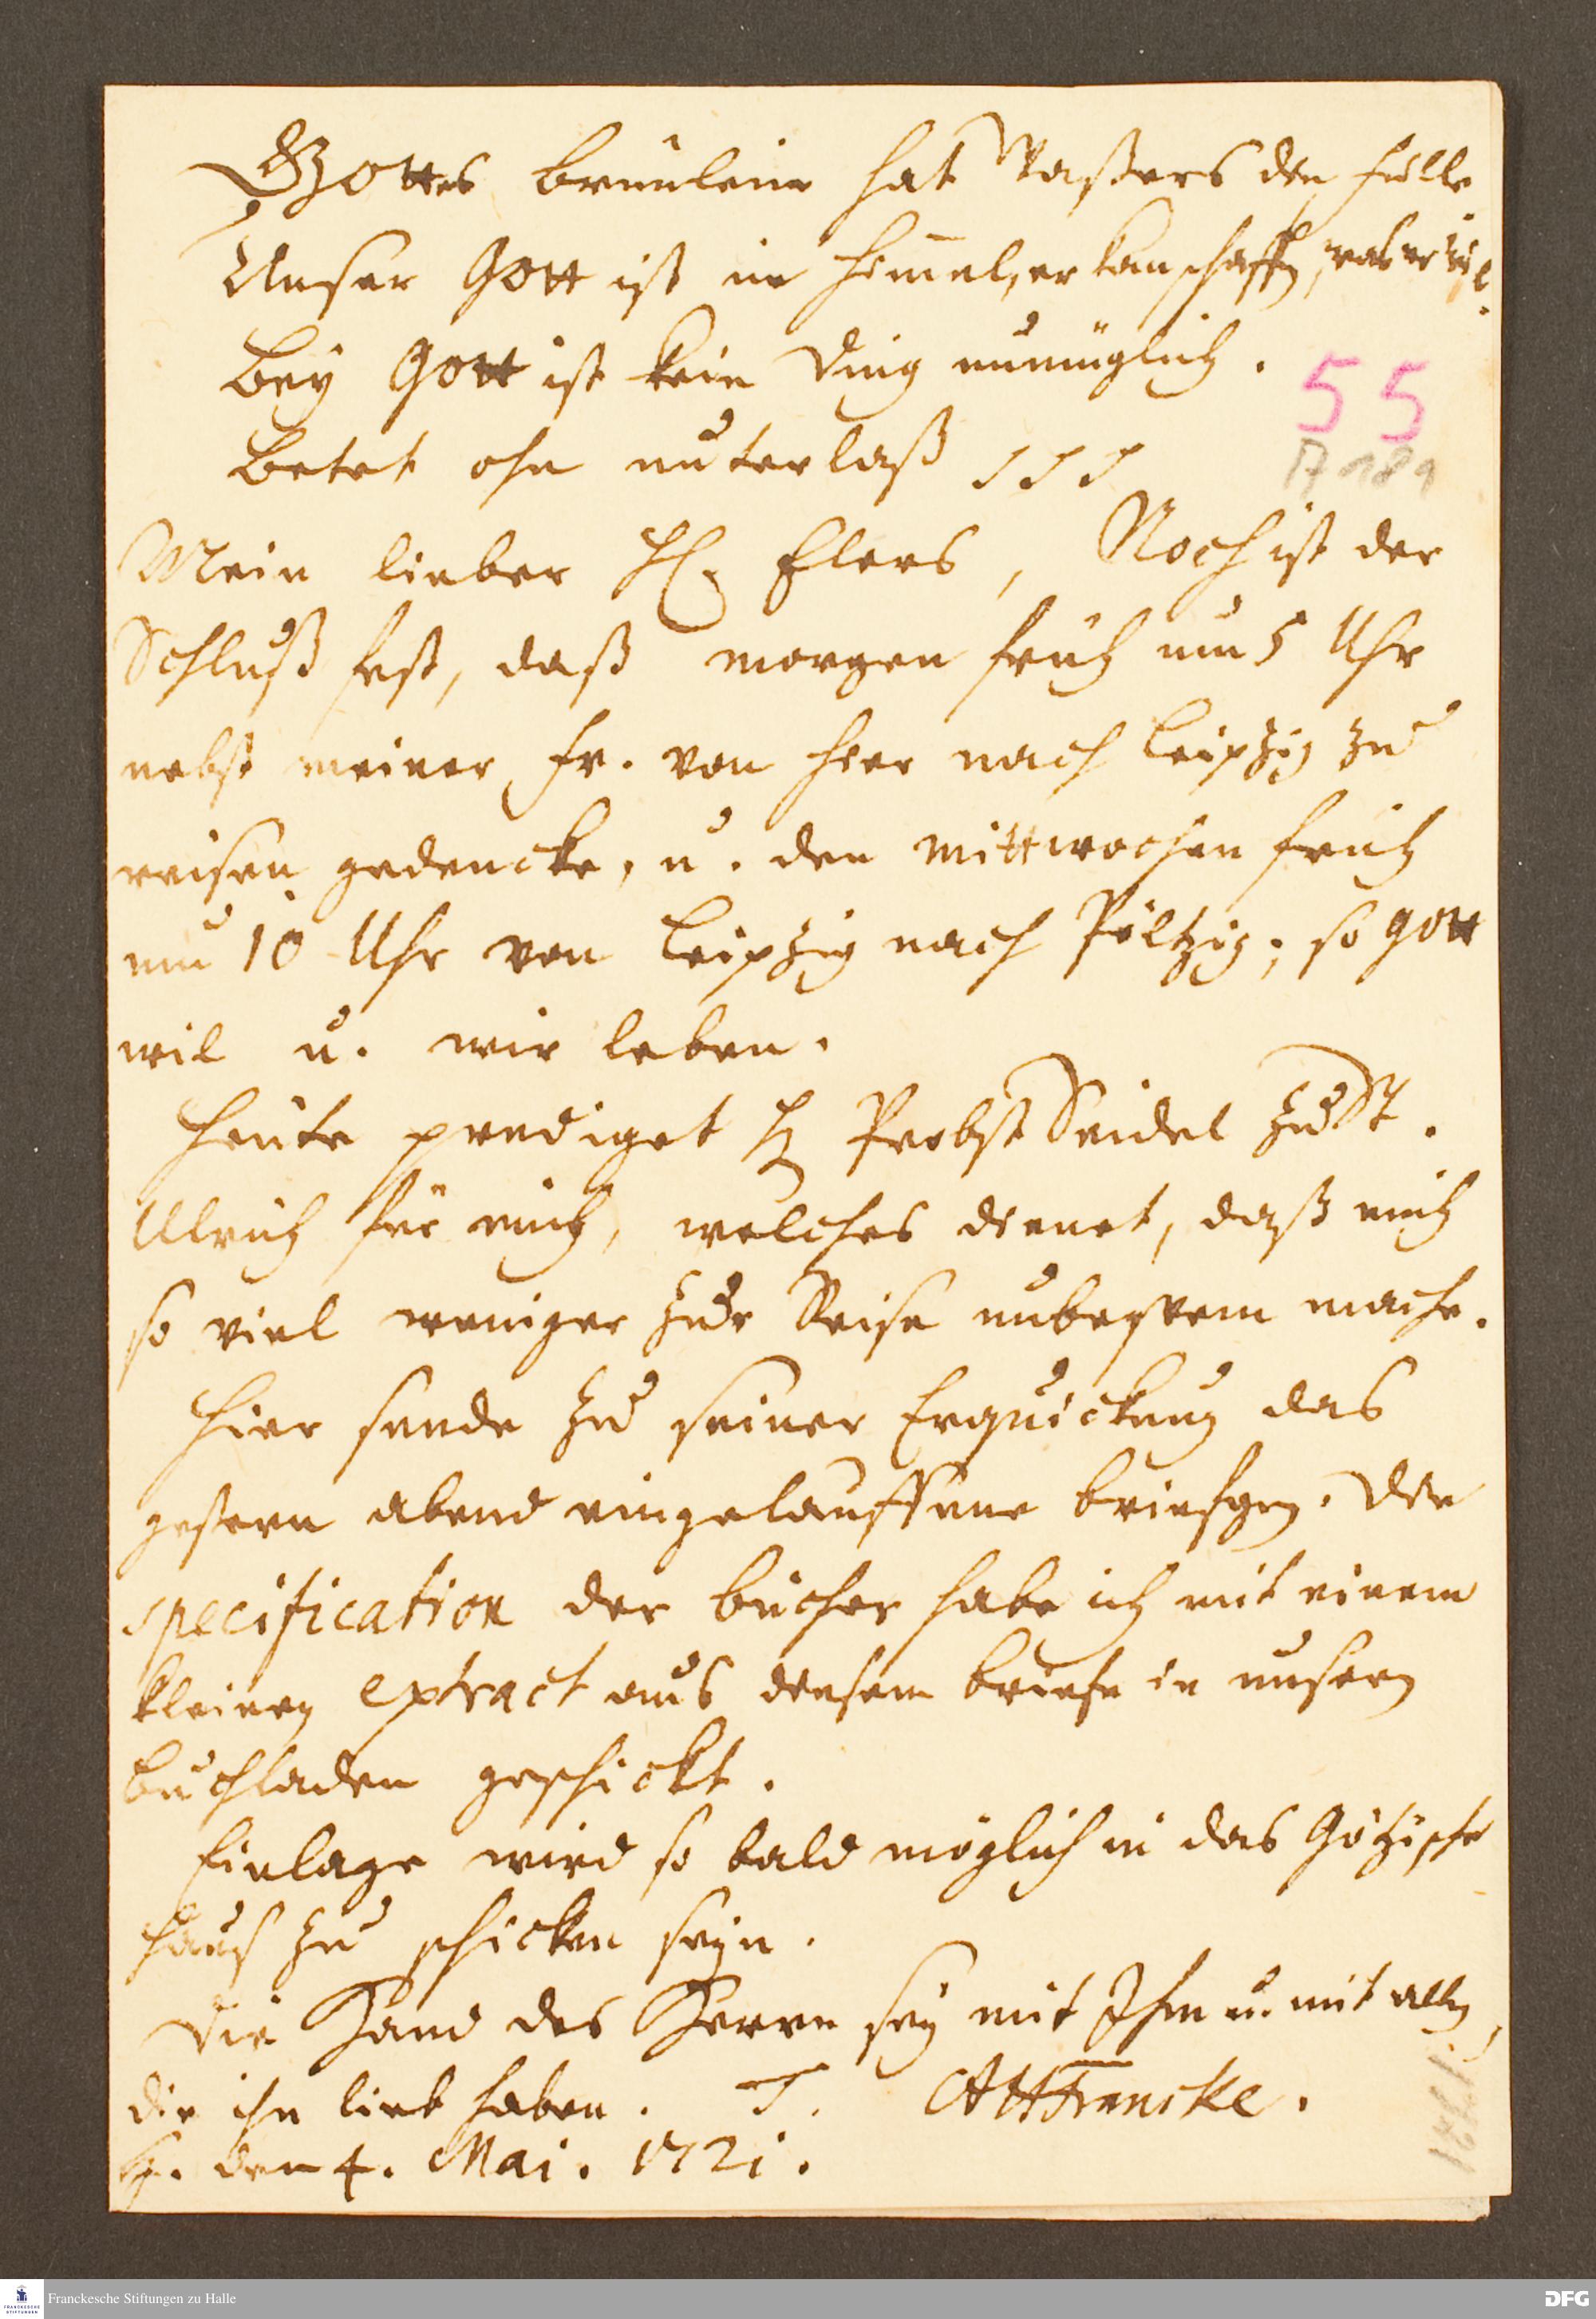 GOttes brünlein hat Waßers die fülle
Unser Gott ist im Himmel, er kan schaffen, was er wil.
Bey Gott ist kein Ding unmüglich.
Betet ohn unterlaß
Mein lieber H. Elers, Noch ist der
Schluß fest, daß morgen früh um 5 Uhr
nebst meiner Fr. von hier nach Leipzig zu
reisen gedencke, u. den mittwochen früh
um 10 Uhr von Leipzig nach Pöltzig; so Gott
wil u. wir leben.
Heute prediget H Probst Seidel zu St.
Ulrich für mich, welches dienet, daß mich
so viel weniger zur Reise unbeqvem mache.
Hier sende zu seiner Erquickung das
gestern abend eingelauffene briefgen. Die
specification der bücher habe ich mit einem
kleinen extract aus diesem briefe in unsern
buchladen geschickt.
Einlage wird so bald möglich in das Götzische
Haus zu schicken seyn.
Die Hand des Herrn sey mit Ihm u. mit allen,
die ihn lieb haben. T. AHFrancke.
H. den 4. Mai. 1721.
55
A 189
Franckesche Stiftungen zu Halle
FRANCKESCHE STIFTUNGEN
DFG